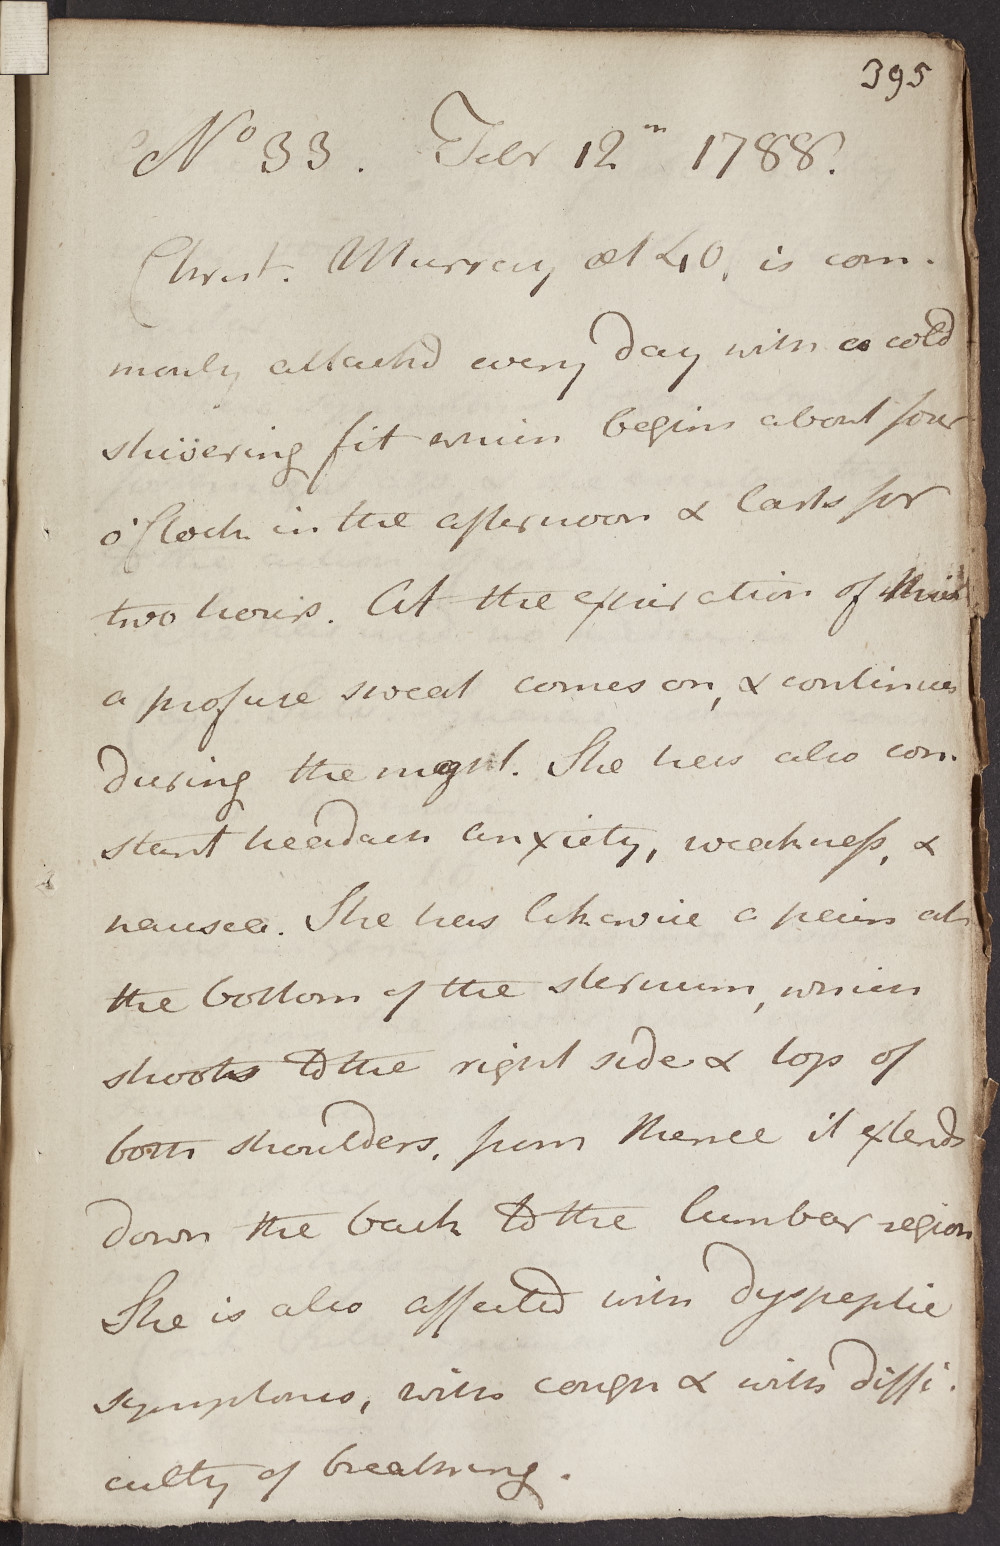 395
No 33. Febr 12th 1788.
Christ. Murray æt 40, is com-
monly attackd every day with a cold
shivering fit which begins about four
o'Clock in the afternoon & lasts for
two hours. At the expiration of this
a profuse sweat comes on, & continues
during the night. She has also con-
stant headach anxiety, weakness, &
nausea. She has likewise a pain at
the bottom of the sternum, which
shoots to the right side & top of
both shoulders, from thence it extends
down the back to the lumbar region
She is also affected with dyspeptic
symptoms, with cough & with diffi-
culty of breathing.